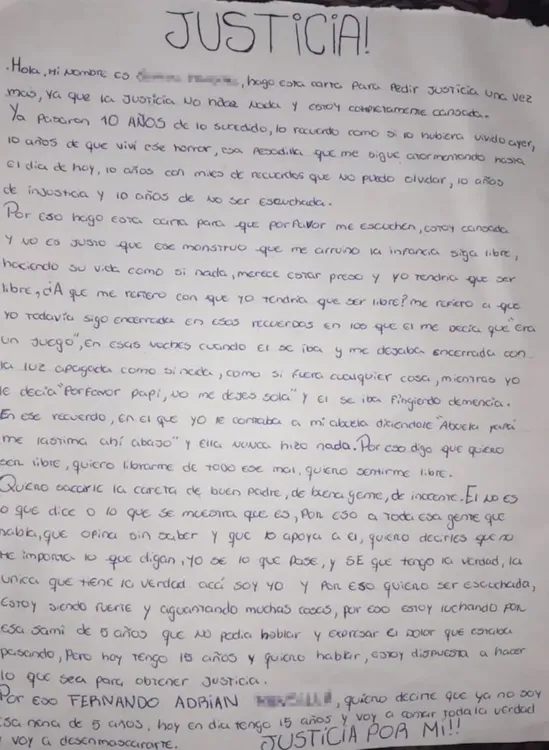 JUSTICIA!
. Hola, Mi nombre es , hago esta carta para pedir justicia una vez
mas, ya que la justicia no hace nada y estoy completamente cansada.
Ya pasaron 10 AÑOS de lo sucedido, lo recuerdo como si lo hubiera vivido ayer,
10 años de que viví ese horror, esa pesadilla que me sigue atormentando hasta
el dia de hoy, 10 años con miles de recuerdos que no puedo olvidar, 10 años
de injusticia y 10 años de no ser escuchada.
Por eso hago esta carta para que porfavor me escuchen, estoy cansada
y no es justo que ese monstruo que me arruino la infancia siga libre,
haciendo su vida como si nada, merece estar preso y yo tendria que ser
libre, ¿A que me refiero con que yo tendria que ser libre? me refiero a que
yo todavía sigo encerrada en esos recuerdos en los que el me decía que "era
un juego", en esas noches cuando el se iba y me dejaba encerrada con
la luz apagada como si nada, como si fuera cualquier cosa, mientras yo
le decía "Porfavor papi, no me dejes sola" y el se iba fingiendo demencia.
En ese recuerdo, en el que yo le contaba a mi abuela diciendole "Abuela papá
me lastima ahí abajo" y ella nunca hizo nada. Por eso digo que quiero
ser libre, quiero librarme de todo ese mal, quiero sentirme libre.
Quiero sacarle la careta de buen padre, de buena gente, de inocente. Él no es
o que dice o lo que se muestra que es, por eso a toda esa gente que
habla, que opina sin saber y que lo apoya a el, quiero decirles que no
me importa lo que digan, yo se lo que pase, y SE que tengo la verdad, la
unica que tiene la verdad acá soy yo y por eso quiero ser escuchada,
estoy siendo fuerte y aguantando muchas cosas, por eso estoy luchando por
esa sami de 5 años que no podia hablar y expresar el dolor que estaba
pasando, pero hoy tengo 15 años y quiero hablar, estoy dispuesta a hacer
lo que sea para obtener justicia.
Por eso FERNANDO ADRIAN , quiero decirte que ya no soy
esa nena de 5 años, hoy en dia tengo 15 años y voy a contar toda la verdad
y voy a desenmascararte. JUSTICIA POR MI!!